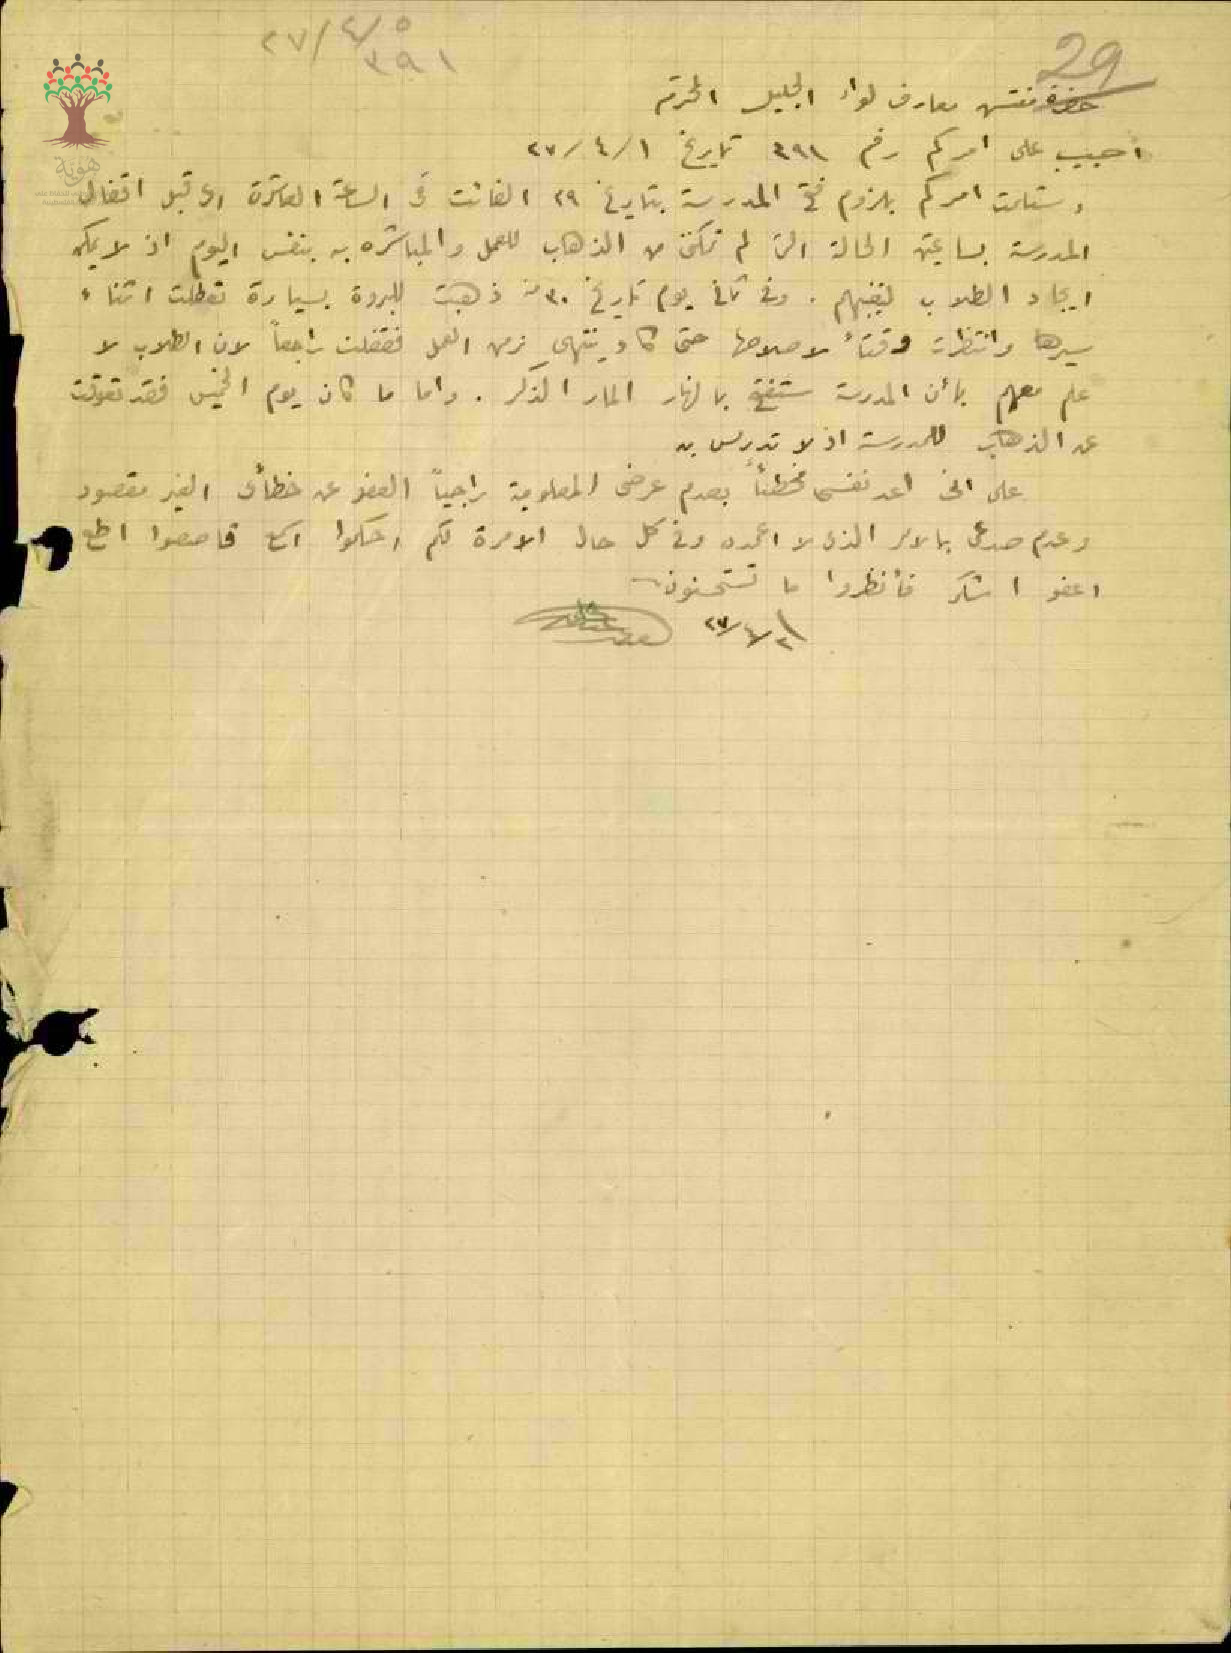 ٢٧/٤/٥
٣٩١
29
حضرة مفتش معارف لواء الجليل المحترم
اجيب على امركم رقم ٣٩١ تاريخ ٢٧/٤/١
استلمت امركم بلزوم فتح المدرسة بتاريخ ٢٩ الفائت في الساعة العاشرة اي قبل اقفال
المدرسة بساعتين الحالة التي لم تمكني من الذهاب للعمل والمباشره به بنفس اليوم اذ لا يمكن
ايجاد الطلاب لتغيبهم . وفي ثاني يوم تاريخ ٣٠ منه ذهبت للبروة بسيارة تعطلت اثناء
سيرها وانتظرت وقتاً لاصلاحها حتى كاد ينتهي زمن العمل فقفلت راجعاً لان الطلاب لا
علم معهم بأن المدرسة ستفتح بالنهار المار الذكر . واما ما كان يوم الخميس فقد تعوقت
عن الذهاب للمدرسة اذ لا تدريس به
على اني اعد نفسي مخطئاً بعدم عرضي المعلومية راجياً العفو عن خطأي الغير مقصود
وعدم صدعي بالامر الذي لا اعمده وفي كل حال الامرة لكم احكموا اسمع قاصصوا اطع
اعفو اشكر فأنظروا ما تستحسنون
٢٧/٤/٢
هوية